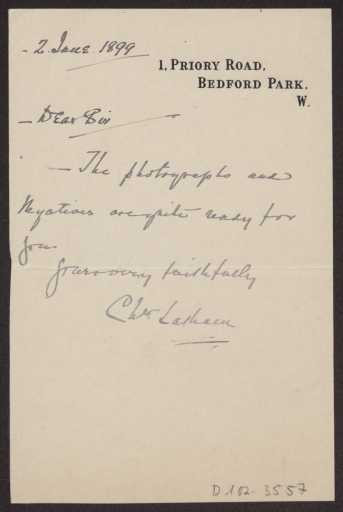 - 2. June 1899
1, PRIORY ROAD,
BEDFORD PARK,
W.
- Dear Sir
- The photographs and
Negatives are quite ready for
you.
yours very faithfully
Chs. Latham
D 102-3557